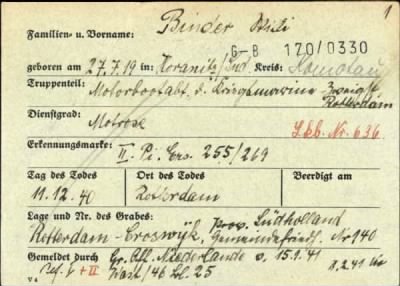 1
Familien- u. Vorname: Binder Willi
G-B 170/0330
geboren am 27.7.19 in: Horanitz/Sud Kreis: Komotau
Truppenteil: Motorbootabt. d. Kriegsmarine Zweigst. Rotterdam
Dienstgrad: Matrose
Lkb. Nr. 636
Erkennungsmarke: II. Pi. Ers. 255/269
Tag des Todes Ort des Todes Beerdigt am
11.12.40 Rotterdam
Lage und Nr. des Grabes: Prov. Südholland
Rotterdam-Croswijk, Gemeindefriedh. Nr 140
Gemeldet durch Gr. Abl. Niederlande v. 15.1.41
Ref. I + II /46 Bl. 25 11.2.41